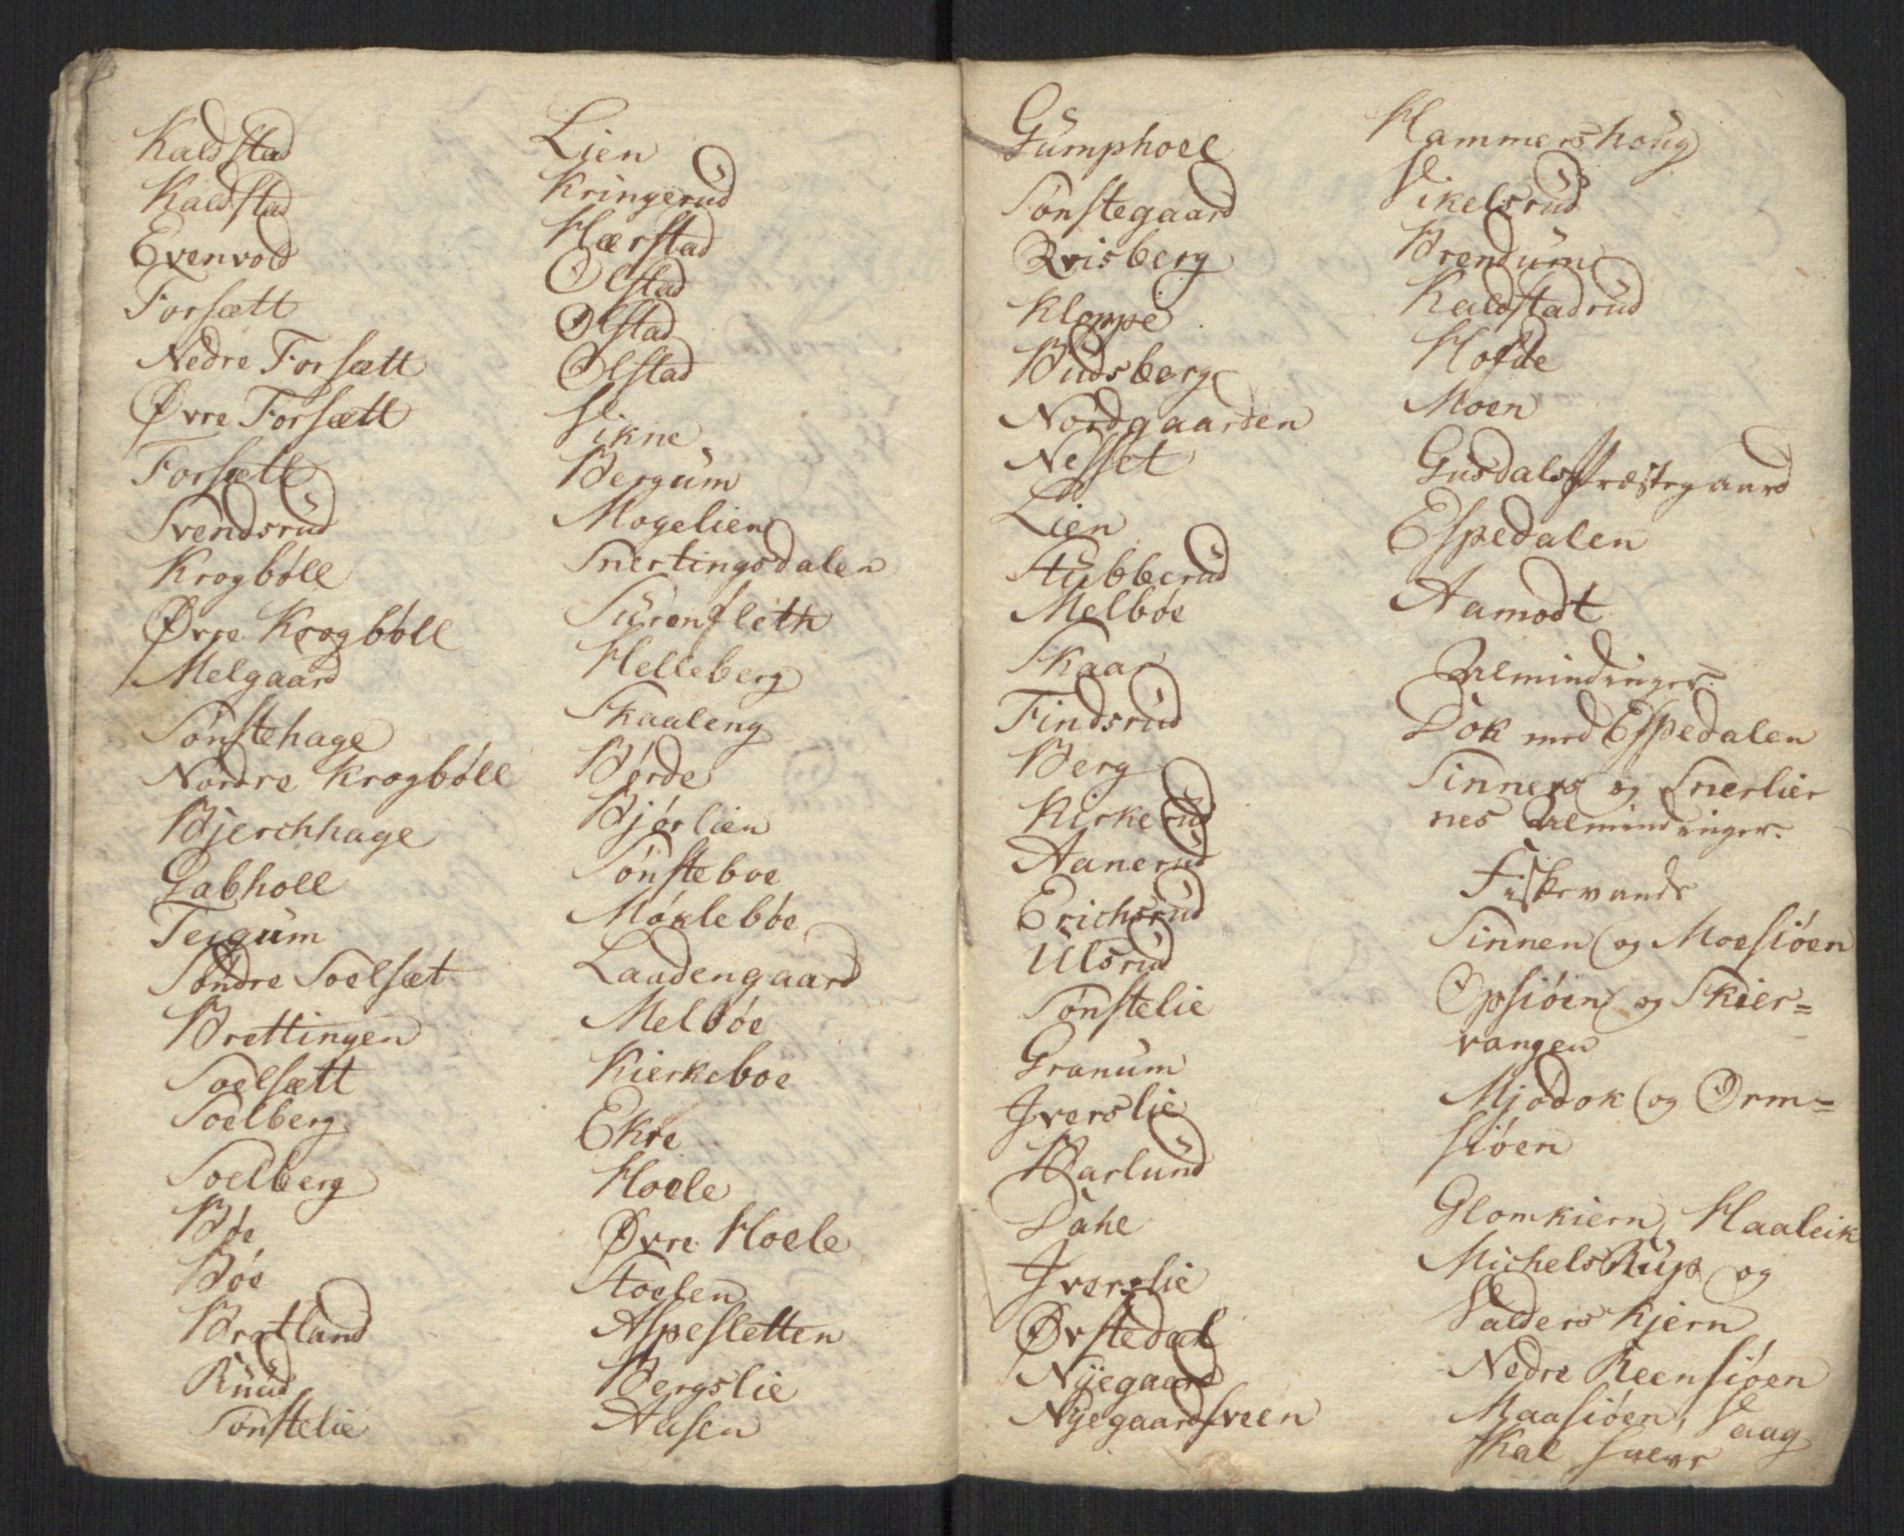 Kaldstad
Kaldstad
Evenvold
Forsætt
Nedre Forsætt
Øvre Forsætt
Forsætt
Svendsrud
Krogbøll
Øvre Krogbøll
Melgaard
Sønstehage
Nordre Krogbøll
Bjerchhage
Gabholl
Teigum
Søndre Soelsæt
Brettingen
Soelsætt
Soelberg
Soelberg
Bøe
Bøe
Bratland
Ruud
Sønstelie
Lien
Kringerud
Hærstad
Olstad
Olstad
Olstad
Vikne
Bergum
Mogelien
Snertingsdalen
Surenfleth
Helleberg
Skaaleng
Børde
Bjørlien
Sønsteboe
Møklebøe
Laadengaard
Melbøe
Kierkeboe
Ekre
Hoele
Øvre Hoele
Stoelen
Aspesletten
Bergslie
Aasen
Gumphoel
Sønstegaard
Qvisberg
Kloppe
Budsberg
Nordgaarden
Nesset
Lien
Stubberud
Melbøe
Skaar
Findsrud
Berg
Kirkerud
Aanerud
Erichsrud
Ulsrud
Sønstelie
Granum
Iverslie
Barlund
Dahe
Iverslie
Øvstedal
Nyegaard
Nyegaardsveen
Hammershoug
Sikelsrud
Brendum
Kaldstadrud
Hofde
Moen
Gusdals Præstegaard
Espedalen
Aamodt
Almindinger.
Dok med Espedalen
Sinnens og Snerlier
nes Almindinger.
Fiskevande
Sinnen og Moesiøen
Opsiøen og Skier=
vangen
Mjødok og Orm=
siøen
Glomkiern, Haaleik
Michels Rup og
Valders Kjern
Nedre Reensiøen
Maasiøen, Vaag
Skal